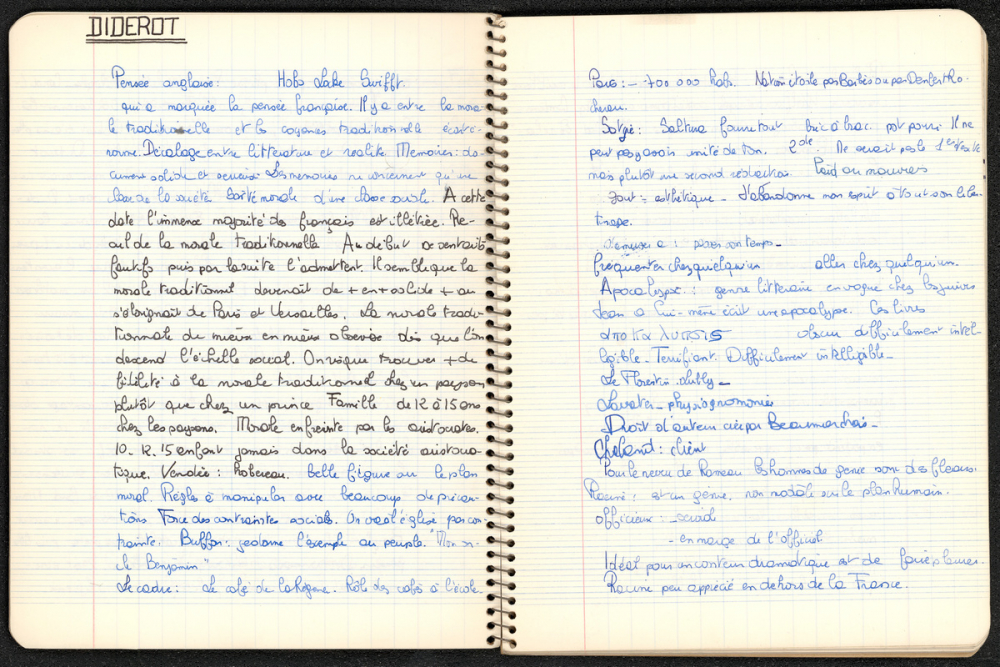 DIDEROT
Pensée anglaise: Hobs Loke Swifft
qui a marquée la pensée française. Il y a entre la mora-
le traditionnelle et les croyances traditionnelle écart é-
norme. Décalage entre littérature et realité Memoires: do-
cument solide et Les memoires ne concernent qu'une
classe de la société Santé morale d'une classe sociale. A cette
date l'immense majorité des français est illétrée. Re-
cul de la morale traditionnelle Au début se sentaient
fautifs puis par la suite l'admettent. Il semble que la
morale traditionnel devenait de + en + solide + on
s'éloignait de Paris et Versailles. La morale tradi-
tionnale de mieux en mieux observée dès que l'on
descend l'échelle social. On risque trouver + de
fidélité à la morale traditionnel chez un paysan
plutôt que chez un prince Famille de 12 à 15 ans
chez les paysans. Morale enfreinte par les aristocrates.
10. 12. 15 enfant jamais dans la société aristocra-
tique. Vendée: Robereau. belle figure sur le plan
moral. Règles à manipuler avec beaucoup de précau-
tions Force des contraintes socials. On va à l'église par con-
trainte. Buffon: je donne l'exemple au peuple. "Mon on-
cle Benjamin"
Le cadre: Le café de la Régence. Rôle des cafés à l'école.
Paris: - 700 000 hab.
Satyre: Saltura fourretout bric à brac. pot pourri Il ne
peut pas y avoir unité de ton. 2de. Ne serait pas le 1er texte
mais plutôt une second rédaction. Laid ou mauvais
Sont: esthétique - J'abandonne mon esprit à tout son liber-
tinage.
S'amuser a: passer son temps -
fréquenter chez quelqu'un aller chez quelqu'un.
Apocalypse: genre littéraire en vogue chez les juives
Jean a lui-même écrit une apocalypse. Ces livres
obscur difficilement intél-
legible - Terrifiant. Difficilement intelligible -
Le Florentin: Lully -
Lavater - physiognomonie
Droit d'auteur crée par Beaumarchais -
Chaland: client
Pour le neveu de Rameau les hommes de genie sont des fleaux.
Racine: est un genie, non modèle sur le plan humain.
officieux: - social
- en marge de l'officiel
Idéal pour un conteur dramatique est de faire pleurer.
Racine peu apprécié en dehors de la France.